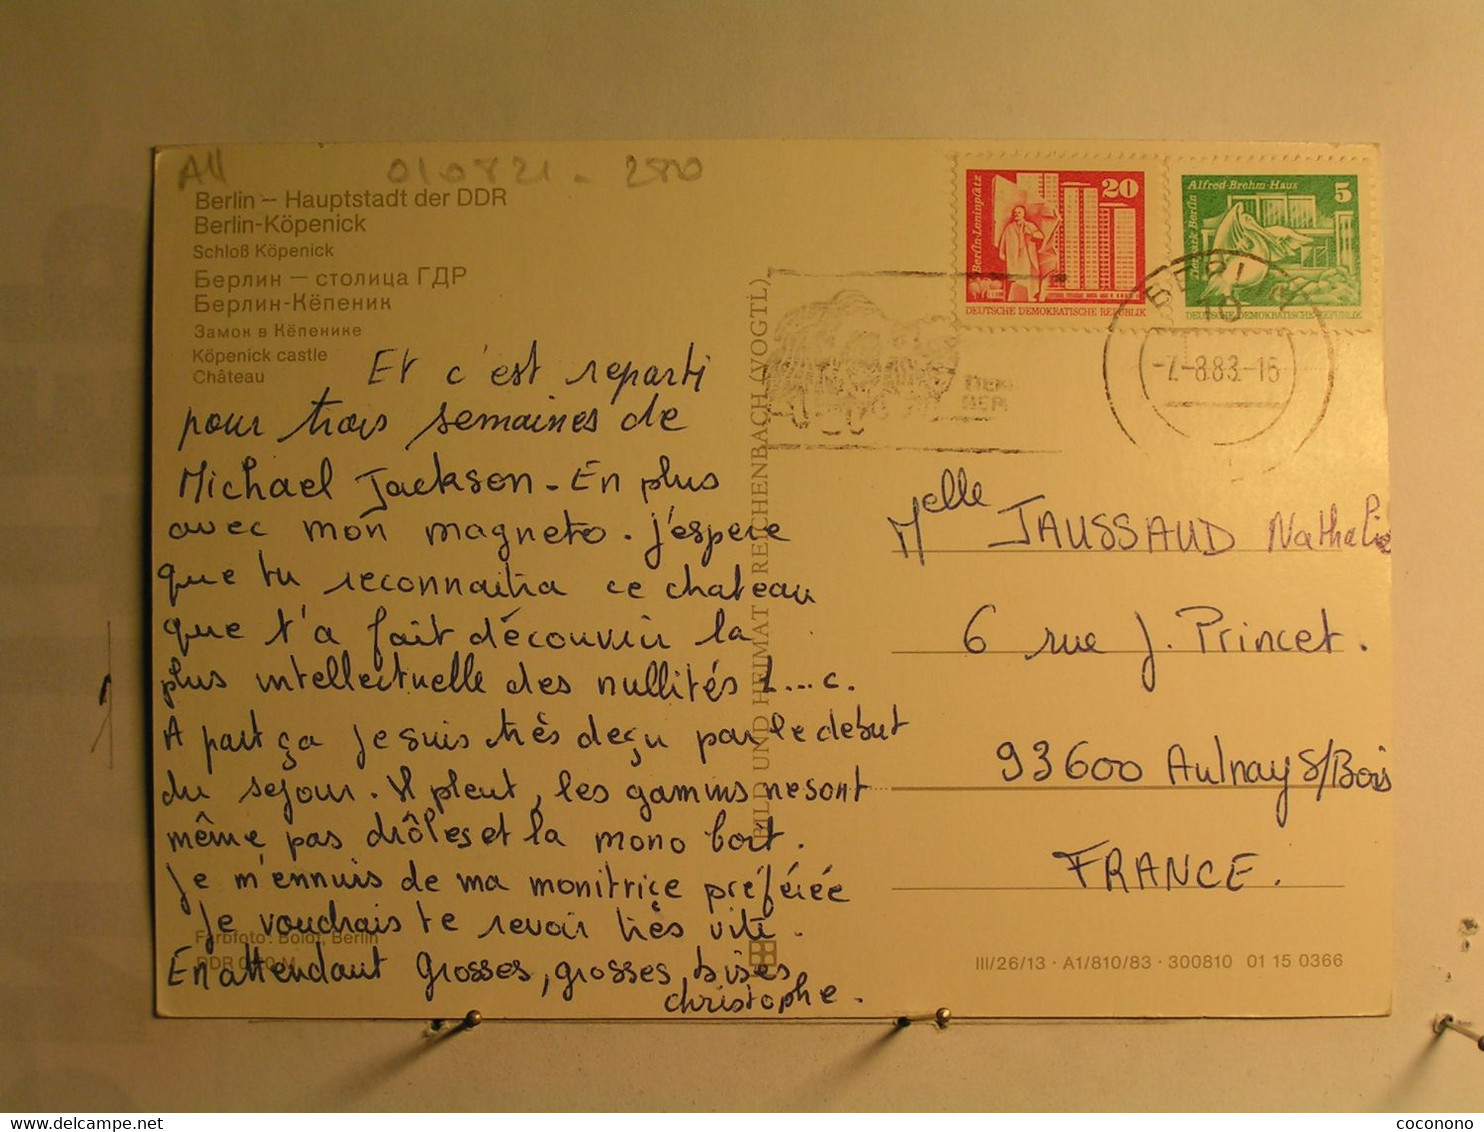 All 010821 - 280
Berlin – Hauptstadt der DDR
Berlin-Köpenick
Schloß Köpenick
Берлин – столица ГДР
Берлин-Кёпеник
Замок в Кёпенике
Köpenick castle
Château
Et c'est reparti
pour trois semaines de
Michael Jackson - En plus
avec mon magneto. j'espere
que tu reconnaitra ce chateau
que t'a fait découvrir la
plus intellectuelle des nullités L...c.
A part ça je suis très deçu par le debut
du sejour. Il pleut, les gamins ne sont
même pas drôles et la mono boit.
Je m'ennuis de ma monitrice préférée
Je voudrais te revoir très vite.
En attendant Grosses, grosses bises
christophe.
Farbfoto: Boldt, Berlin
BILD UND HEIMAT REICHENBACH (VOGTL)
20
Berlin-Leninplatz
DEUTSCHE DEMOKRATISCHE REPUBLIK
Alfred-Brehm-Haus 5
Tierpark Berlin
DEUTSCHE DEMOKRATISCHE REPUBLIK
BERLIN
10
-7.-8.83.-16
Melle JAUSSAUD Nathalie
6 rue J. Princet.
93600 Aulnay s/Bois
FRANCE.
III/26/13 · A1/810/83 · 300810 01 15 0366
coconono